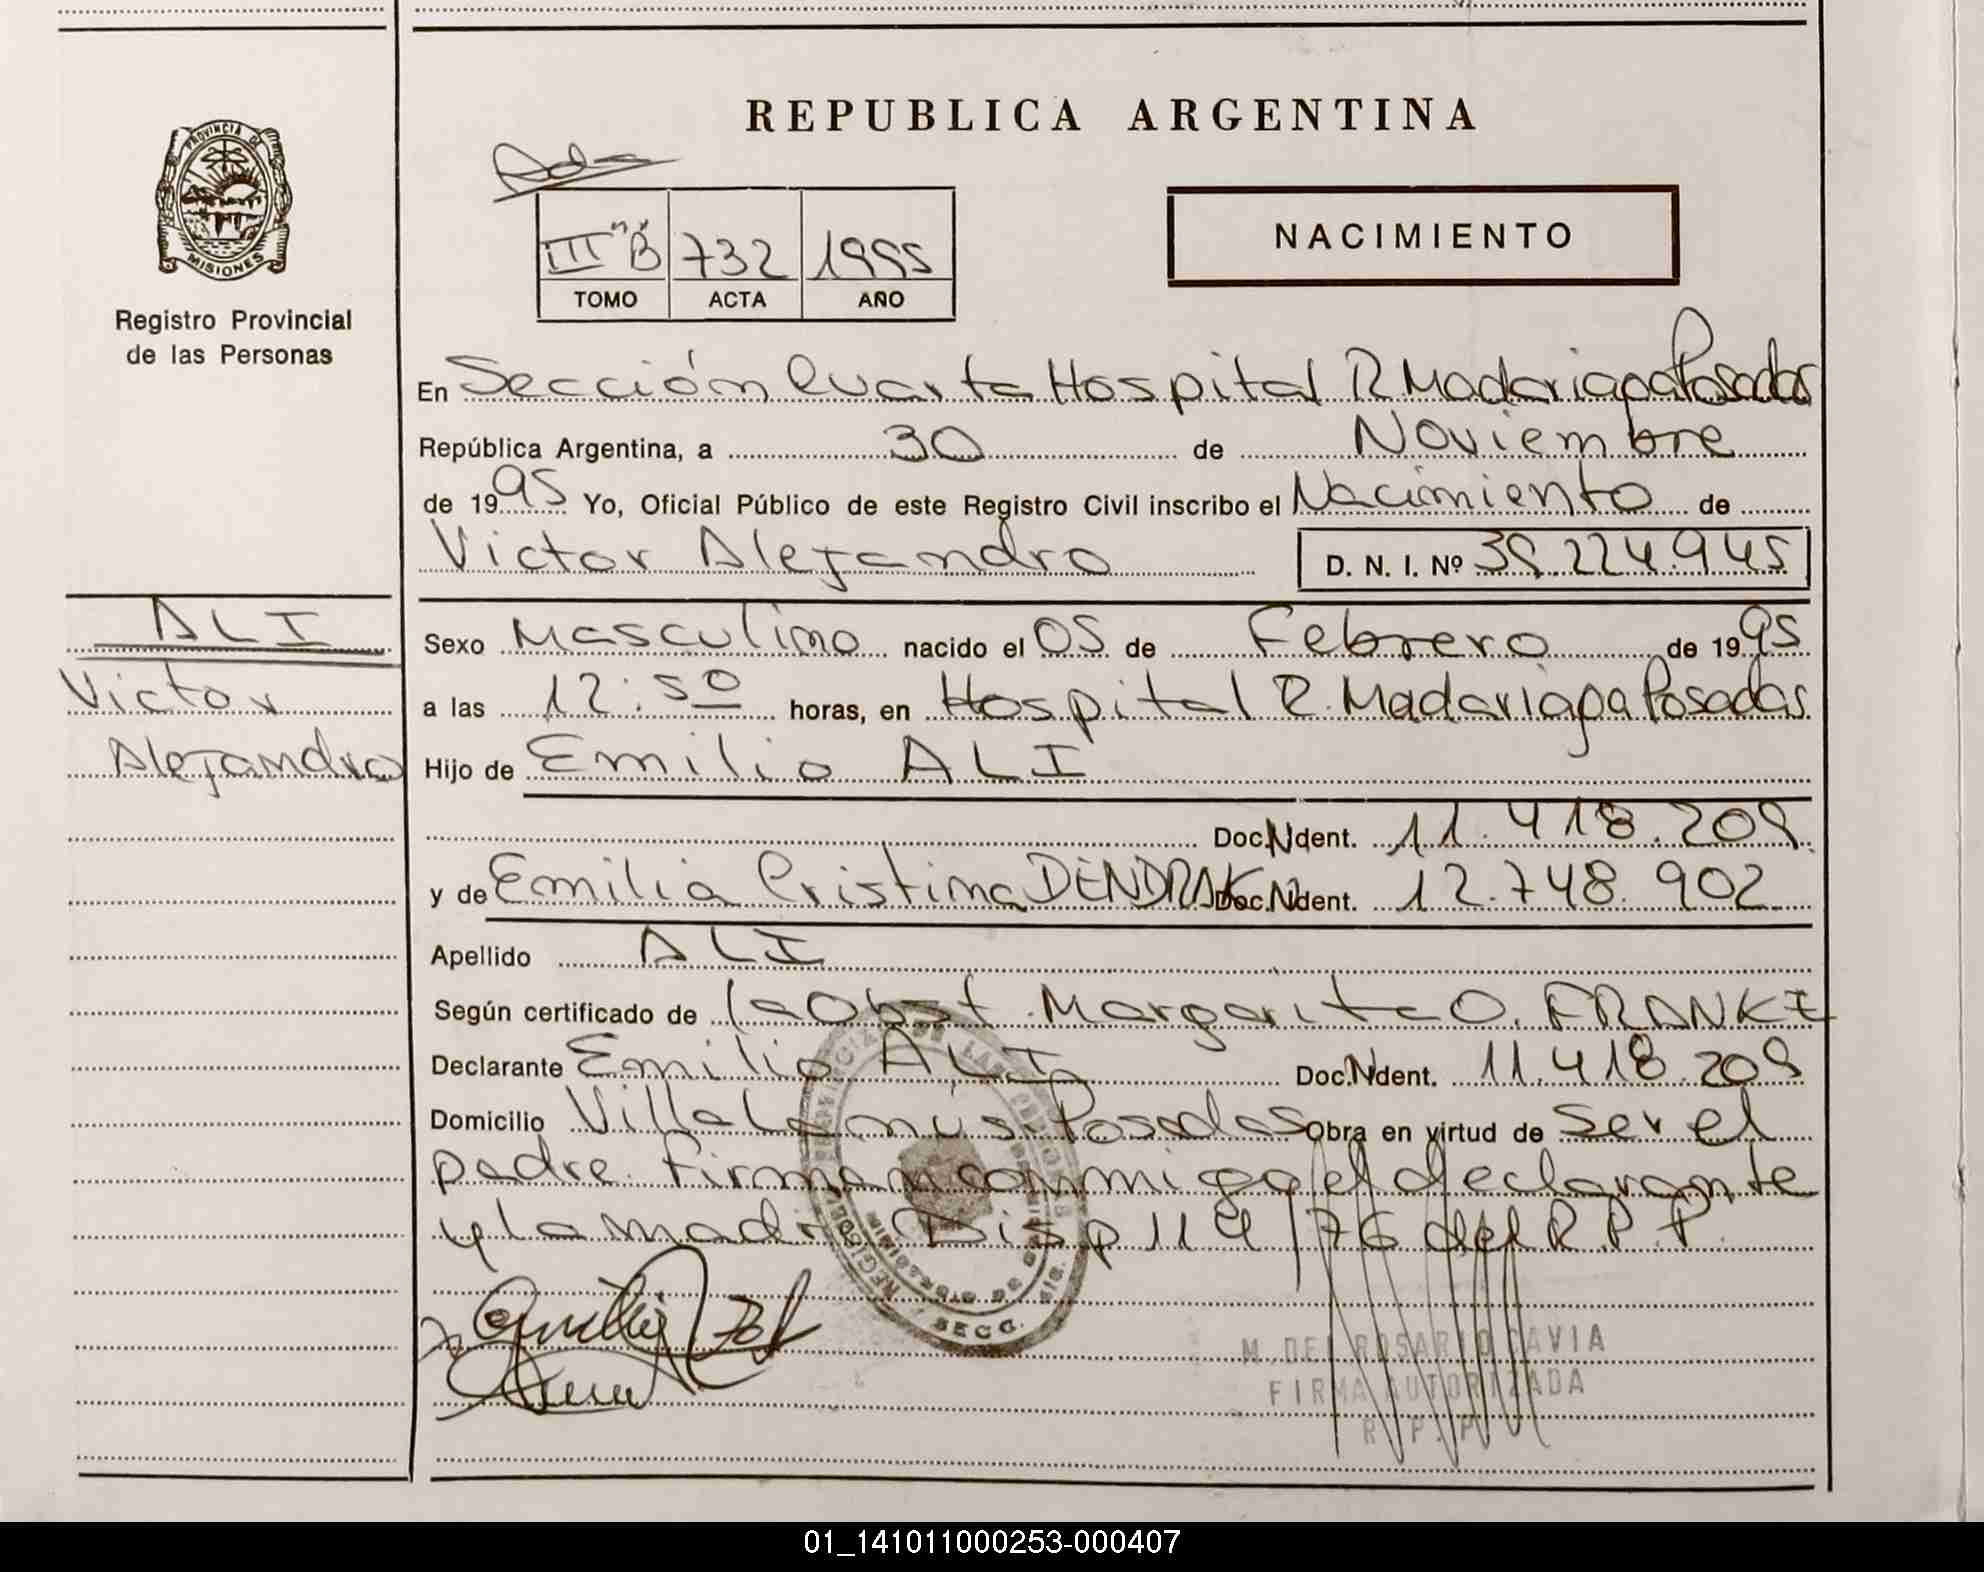 REPUBLICA ARGENTINA
PROVINCIA DE
MISIONES
Registro Provincial
de las Personas
III "B" 732 1995
TOMO ACTA AÑO
NACIMIENTO
En Sección Cuarta Hospital R. Madariaga Posadas
República Argentina, a 30 de Noviembre
de 1995 Yo, Oficial Público de este Registro Civil inscribo el Nacimiento de
Victor Alejandro D. N. I. Nº 39.224.945
ALI
Victor
Alejandro
Sexo Masculino nacido el 05 de Febrero de 1995
a las 12:50 horas, en Hospital R. Madariaga Posadas
Hijo de Emilio ALI
Doc. N Ident. 11.418.209
y de Emilia Cristina Doc. N Ident. 12.748.902
Apellido ALI
Según certificado de la Obst. Margarita O. FRANKE
Declarante Emilio ALI Doc. N Ident. 11.418.209
Domicilio Villa Lanús Posadas Obra en virtud de ser el
padre. Firman conmigo el declarante
y la madre Disp 114/76 del R.P.P.
SECC.
M. DEL ROSARIO CAVIA
FIRMA AUTORIZADA
R. P. P.
01_141011000253-000407